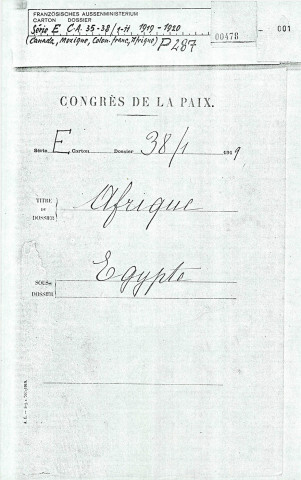 FRANZÖSISCHES AUSSENMINISTERIUM
CARTON DOSSIER
Série E C.A. 35-38/1-11 1919-1920
(Canada, Mexique, Colon. franc, Afrique) P 287
00478 - 001
CONGRÈS DE LA PAIX.
Série E Carton Dossier 38/1 1919
TITRE
DU
DOSSIER
Afrique
Egypte
SOUS-
DOSSIER